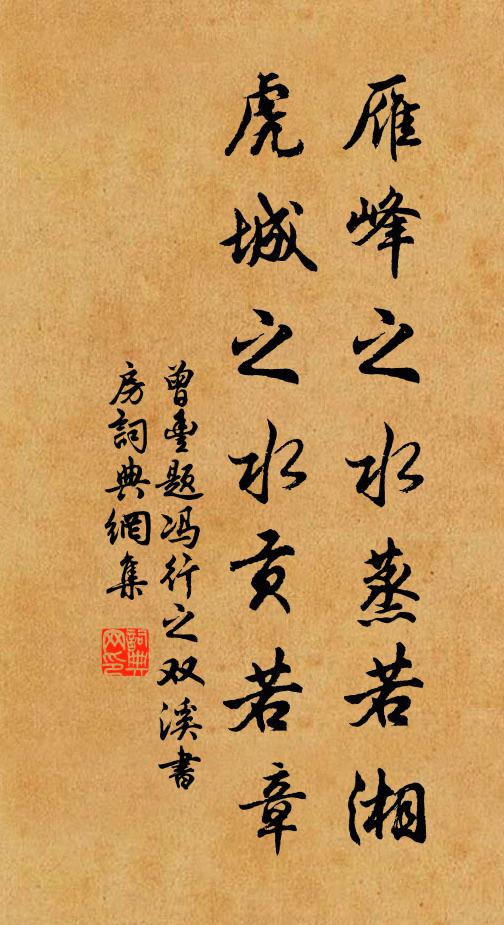 雁峰之水蒸若湘
虎城之水贡若章
曾豊题冯行之双溪書
房詞典網集
詞典
网印